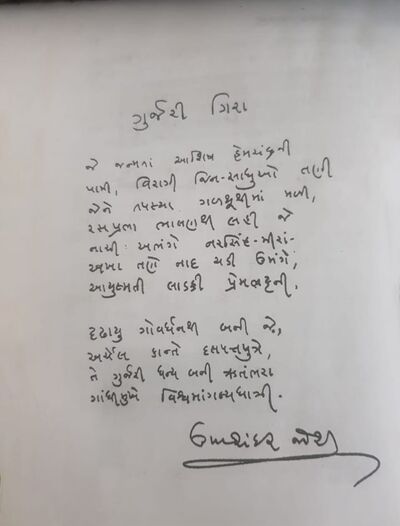 ગુર્જરી ગિરા
જે જન્મતાં આશિષ હેમચંદ્રની
પામી, વિરાગી જિન-સાધુઓ તણી
જેને તપસ્યા ગળથૂથીમાં મળી,
રસપ્રભા ભાલણથી લહી જે
નાચી અભંગે નરસિંહ-મીરાં-
અખા તણે નાદ ચડી ઉમંગે,
આયુષ્મતી લાડકી પ્રેમભટ્ટની,
દૃઢાયુ ગોવર્ધનથી બની જે,
અર્ચેલ કાન્તે દલપત્તપુત્રે,
તે ગુર્જરી ધન્ય બની ઋતંભરા
ગાંધીમુખે વિશ્વમાંગલ્યધાત્રી.
ઉમાશંકર જોશી